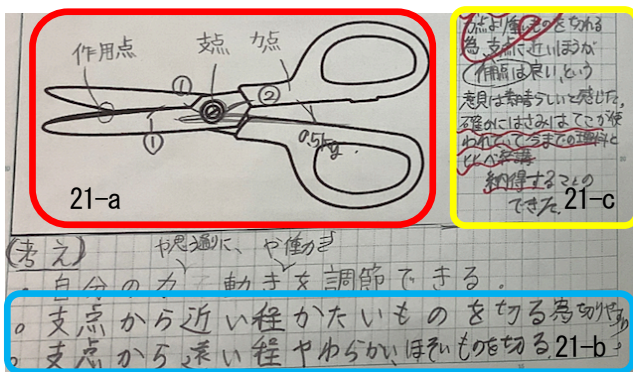 作用点
支点
力点
①
②
①
0.5kg
21-a
力点より重いものを切れる
為、支点に近いほうが
作用点は良い、という
意見は素晴らしいと感じた。
確かにはさみはてこが使
われていて今までの理科と
納得することの
できた。21-c
(考え)
や思う通りに、や働きを
自分の力 動きを調節できる。
支点から近い程かたいものを切る為切りやすい
支点から遠い程やわらかい、ほそいものを切る 21-b